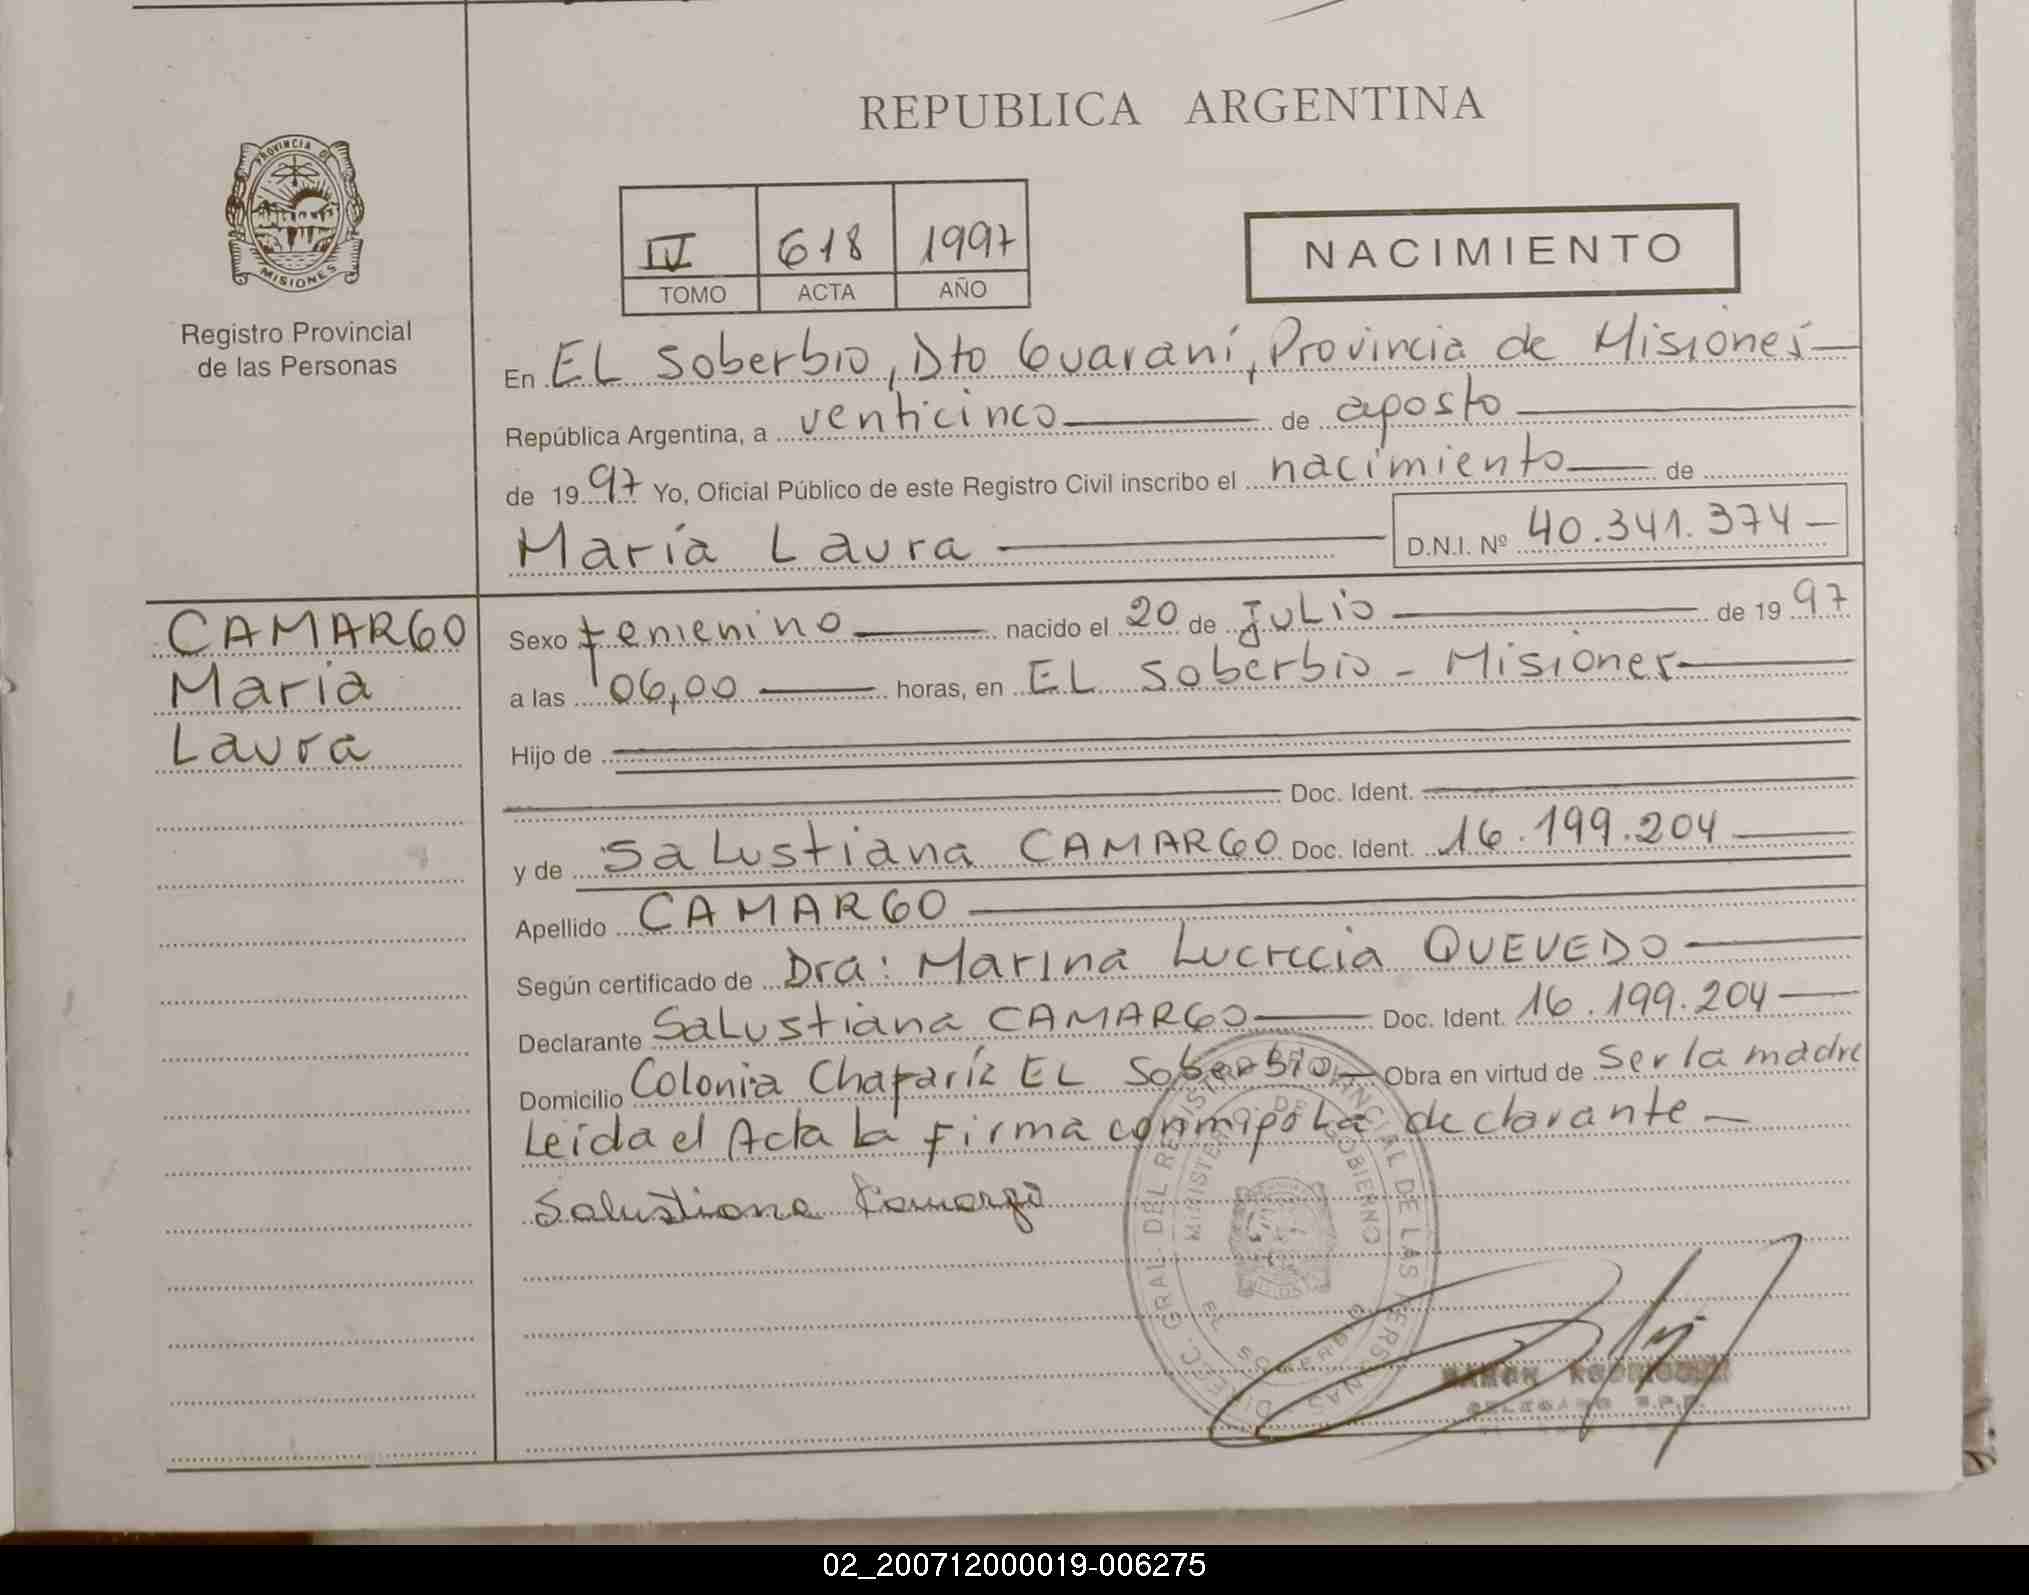 REPUBLICA ARGENTINA
PROVINCIA DE
MISIONES
Registro Provincial
de las Personas
IV 618 1997
TOMO ACTA AÑO
NACIMIENTO
En EL Soberbio, Dto Guaraní, Provincia de Misiones
República Argentina, a venticinco de agosto
de 1997 Yo, Oficial Público de este Registro Civil inscribo el nacimiento de
María Laura D.N.I. Nº 40.341.374
CAMARGO
María
Laura
Sexo femenino nacido el 20 de Julio de 1997
a las 06,00 horas, en EL Soberbio - Misiones
Hijo de
Doc. Ident.
y de Salustiana CAMARGO Doc. Ident. 16.199.204
Apellido CAMARGO
Según certificado de Dra: Marina Lucrecia QUEVEDO
Declarante Salustiana CAMARGO Doc. Ident. 16.199.204
Domicilio Colonia Chafaríz EL Soberbio Obra en virtud de Ser la madre
Leída el Acta la firma conmigo La declarante
Salustiana Camargo
DIREC. GRAL. DEL REGISTRO PROVINCIAL DE LAS PERSONAS
MINISTERIO DE GOBIERNO
EL SOBERBIO
RAMON
02_200712000019-006275